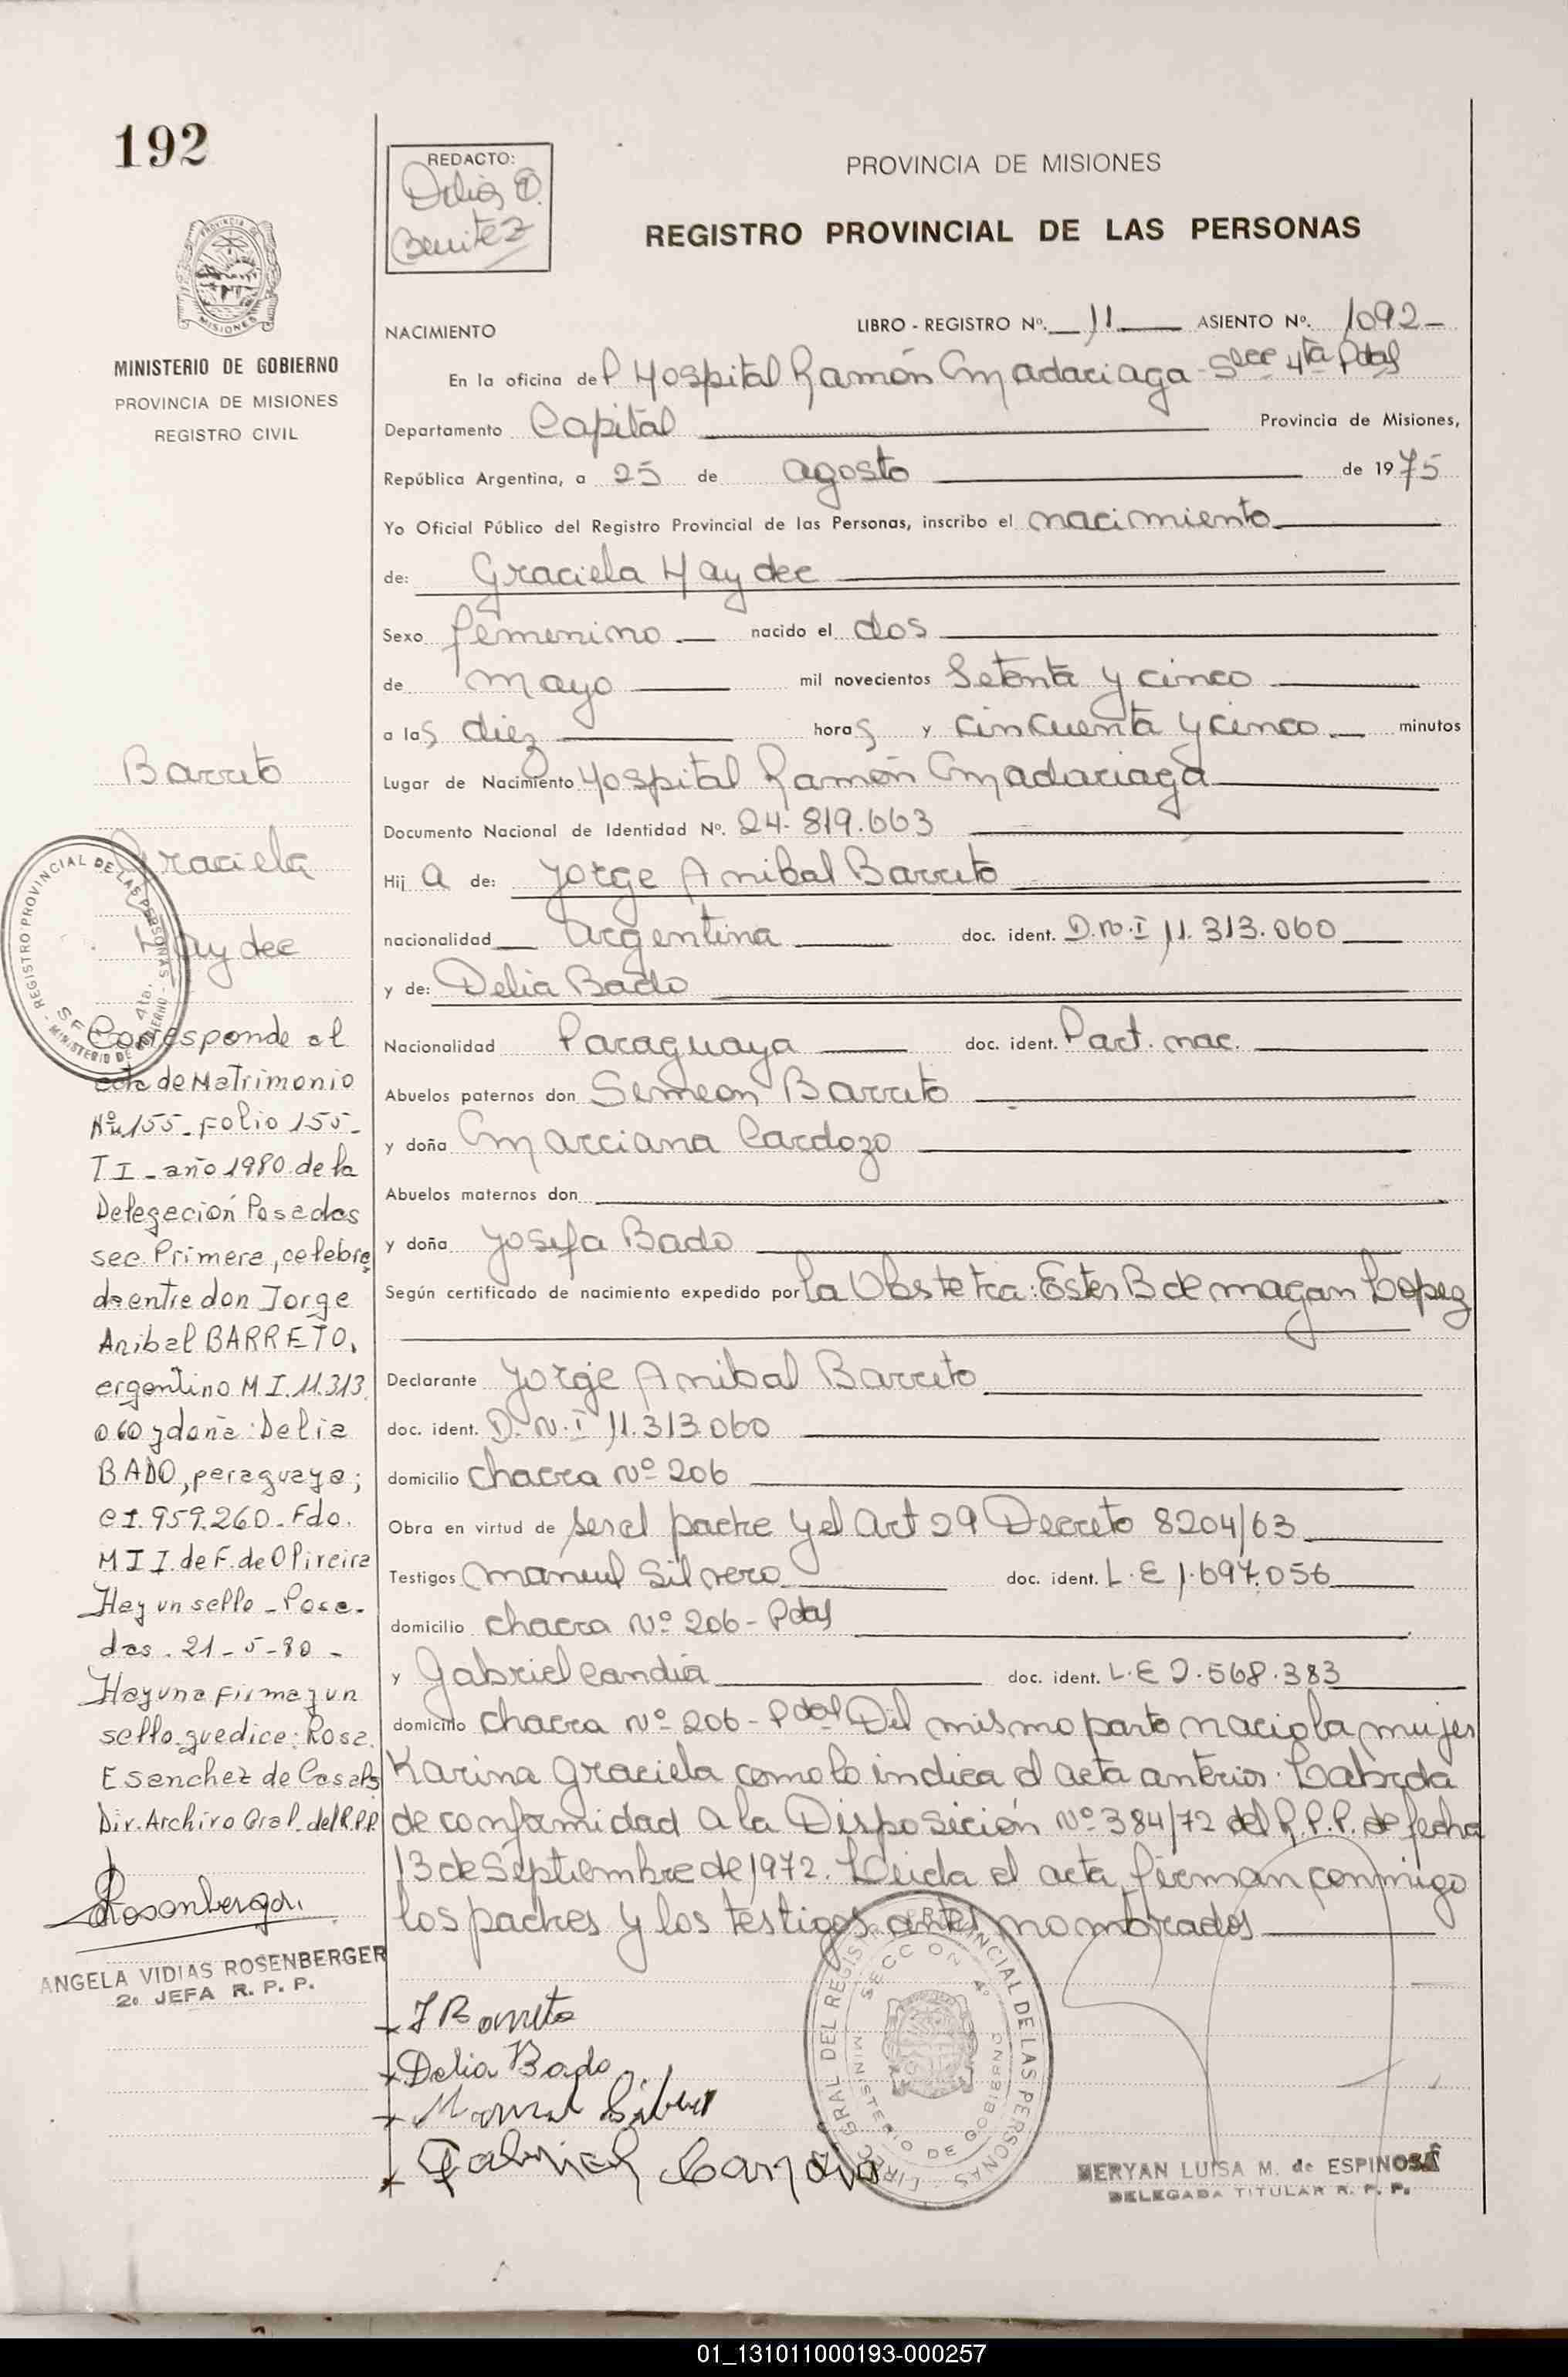 192
REDACTO:
Delia O.
Benitez
PROVINCIA DE MISIONES
REGISTRO PROVINCIAL DE LAS PERSONAS
MISIONES
MINISTERIO DE GOBIERNO
PROVINCIA DE MISIONES
REGISTRO CIVIL
NACIMIENTO LIBRO - REGISTRO Nº. 11 ASIENTO Nº. 1092
En la oficina del Hospital Ramón Madariaga - Secc 4ta Pdas
Departamento Capital Provincia de Misiones,
República Argentina, a 25 de agosto de 1975
Yo Oficial Público del Registro Provincial de las Personas, inscribo el nacimiento
de: Graciela Haydee
Sexo femenino nacido el dos
de mayo mil novecientos setenta y cinco
a las diez horas y cincuenta y cinco minutos
Lugar de Nacimiento Hospital Ramón Madariaga
Documento Nacional de Identidad Nº. 24.819.663
Hija de: Jorge Anibal Barreto
nacionalidad argentina doc. ident. D.N.I 11.313.060
y de: Delia Bado
Nacionalidad Paraguaya doc. ident. Part. nac.
Abuelos paternos don Simeon Barreto
y doña Marciana Cardozo
Abuelos maternos don
y doña Josefa Bado
Según certificado de nacimiento expedido por la Obstetra: Ester B de magan Lopez
Declarante Jorge Anibal Barreto
doc. ident. D.N.I 11.313.060
domicilio chacra Nº 206
Obra en virtud de ser el padre y el Art 29 Decreto 8204/63
Testigos Manuel Silvero doc. ident. L.E 1.697.056
domicilio chacra Nº 206 - Pdas
y Gabriel Candia doc. ident. L.E 2.568.383
domicilio chacra Nº 206 - Pdas Del mismo parto nacio la mujer
Karina Graciela como lo indica el acta anterior. Labrada
de conformidad a la Disposición Nº 384/72 del R.P.P. de fecha
13 de Septiembre de 1972. Leida el acta, firman conmigo
los padres y los testigos antes nombrados
Barreto
Graciela
Haydee
REGISTRO PROVINCIAL DE LAS PERSONAS - MINISTERIO DE GOBIERNO
4ta.
Corresponde al
acta de Matrimonio
Nº 155 - Folio 155 -
T I - año 1980 de la
Delegación Posadas
sec. Primera, celebra
da entre don Jorge
Anibal BARRETO,
argentino M I. 11.313.
060 y doña: Delia
BADO, paraguaya;
C I. 959.260 - Fdo.
M I I. de F. de Olireira
Hay un sello - Posa-
das. 21-5-80 -
Hay una firma y un
sello que dice: Rosa.
E Sanchez de Casals
Dir. Archivo Gral. del R.P.P.
Rosenberger.
ANGELA VIDIAS ROSENBERGER
2º JEFA R. P. P.
J Barreto
Delia Bado
Manuel Silvero
Gabriel Candia
DIREC GRAL DEL REGISTRO PROVINCIAL DE LAS PERSONAS
SECCION 4º
MINISTERIO DE GOBIERNO
MERYAN LUISA M. de ESPINOSA
DELEGADA TITULAR R. P. P.
01_131011000193-000257